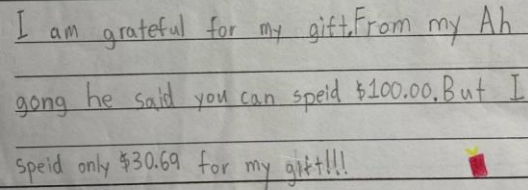 I am grateful for my gift.From my Ah
gong he said you can speid $100.00.But I
speid only $30.69 for my gift!!!